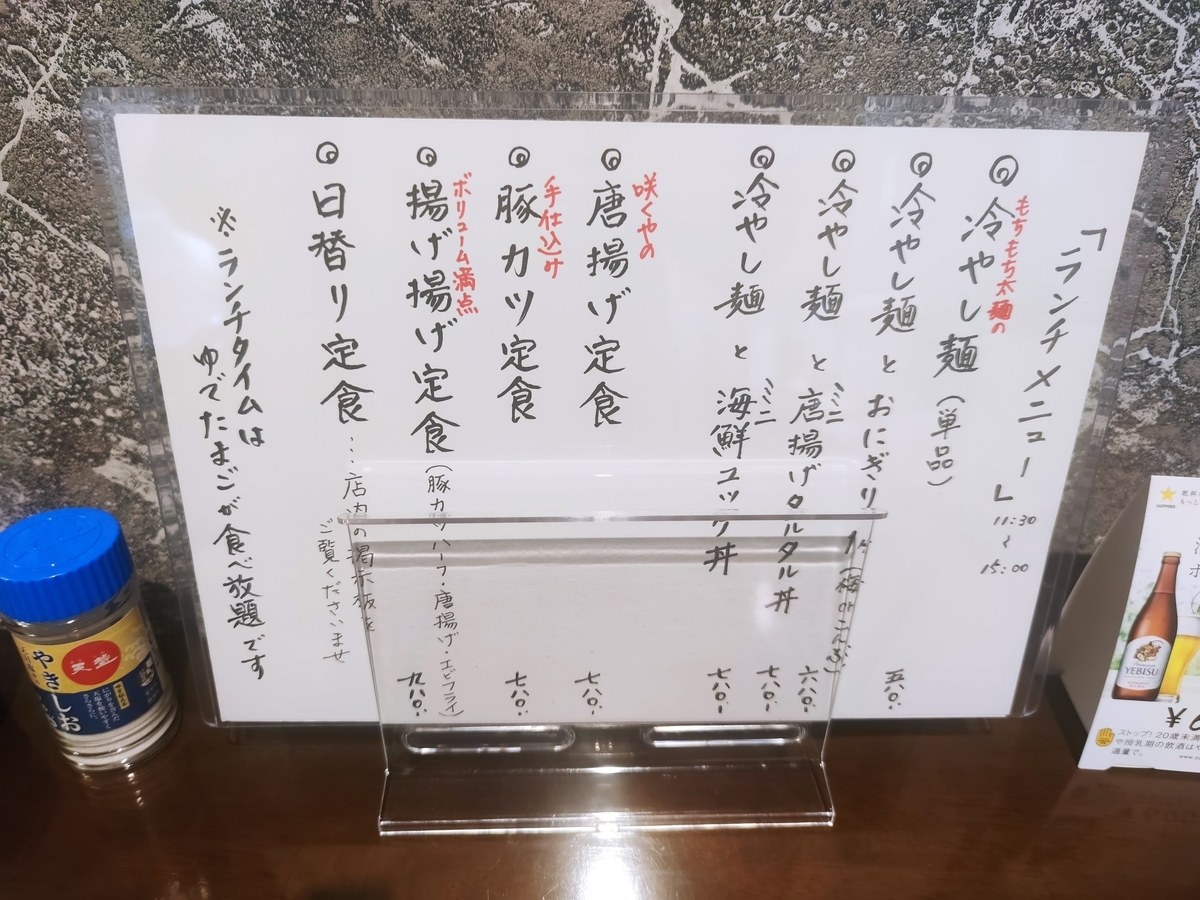 「ランチメニュー」
11:30
〜
15:00
もちもち太麺の
◎冷やし麺(単品) 五八〇.-
◎冷やし麺とおにぎり1ケ(梅orこんぶ) 六八〇.-
◎冷やし麺とミニ唐揚げタルタル丼 七八〇.-
◎冷やし麺とミニ海鮮ユッケ丼 七八〇.-
咲くやの
◎唐揚げ定食 七八〇.-
手仕込み
◎豚カツ定食 七八〇.-
ボリューム満点
◎揚げ揚げ定食(豚カツハーフ・唐揚げ・エビフライ) 九八〇.-
◎日替り定食…店内の掲示板を
ご覧くださいませ
※ランチタイムは
ゆでたまごが食べ放題です
天塩
やきしお
SAPPORO
YEBISU
ストップ!20歳未満
や授乳期の飲酒は
適量で。